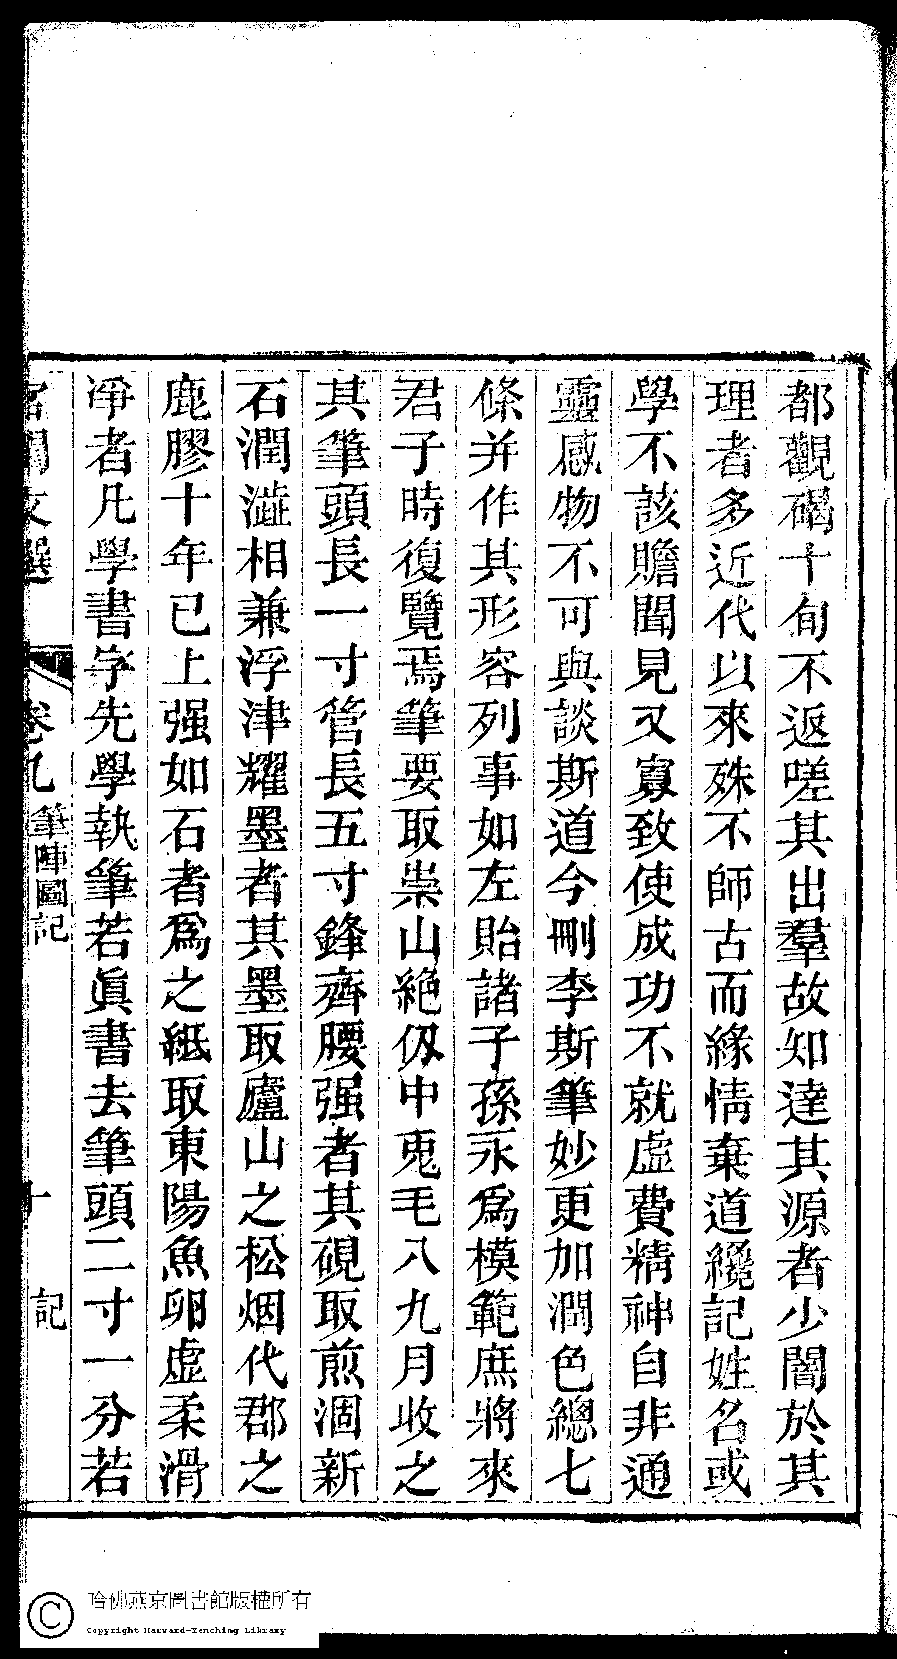 都觀碣十旬不返嗟其出羣故知達其源者少闇於其
理者多近代以來殊不師古而緣情棄道纔記姓名或
學不該贍聞見又寡致使成功不就虛費精神自非通
靈感物不可與談斯道今刪李斯筆妙更加潤色總七
條并作其形容列事如左貽諸子孫永爲模範庶將來
君子時復覽焉筆要取崇山絶仭中兎毛八九月收之
其筆頭長一寸管長五寸鋒齊腰强者其硯取煎涸新
石潤澁相兼浮津耀墨者其墨取廬山之松烟代郡之
鹿膠十年已上强如石者爲之紙取東陽魚卵虛柔滑
凈者凡學書字先學執筆若眞書去筆頭二寸一分若
宮閨文選
卷九
筆陣圖記
十
記
哈佛燕京圖書館版權所有
Copyright Harvard-Yenching Library